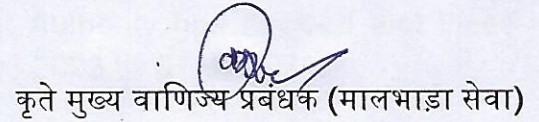 कृते मुख्य वाणिज्य प्रबंधक (मालभाड़ा सेवा)